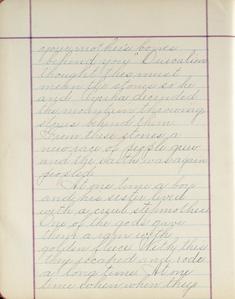 your mother's bones
behind you" Ducalion
thought this must
mean the stones so he
and Pyrrha decended
the mountain throwing
stones behind them
From these stones a
new race of people grew
and the earth was again
peopled
At one time a boy
and his sister lived
with a cruel stepmother
One of the gods gave
them a ram with
golden fleece With this
they escaped and rode
a long time At one
time when when they